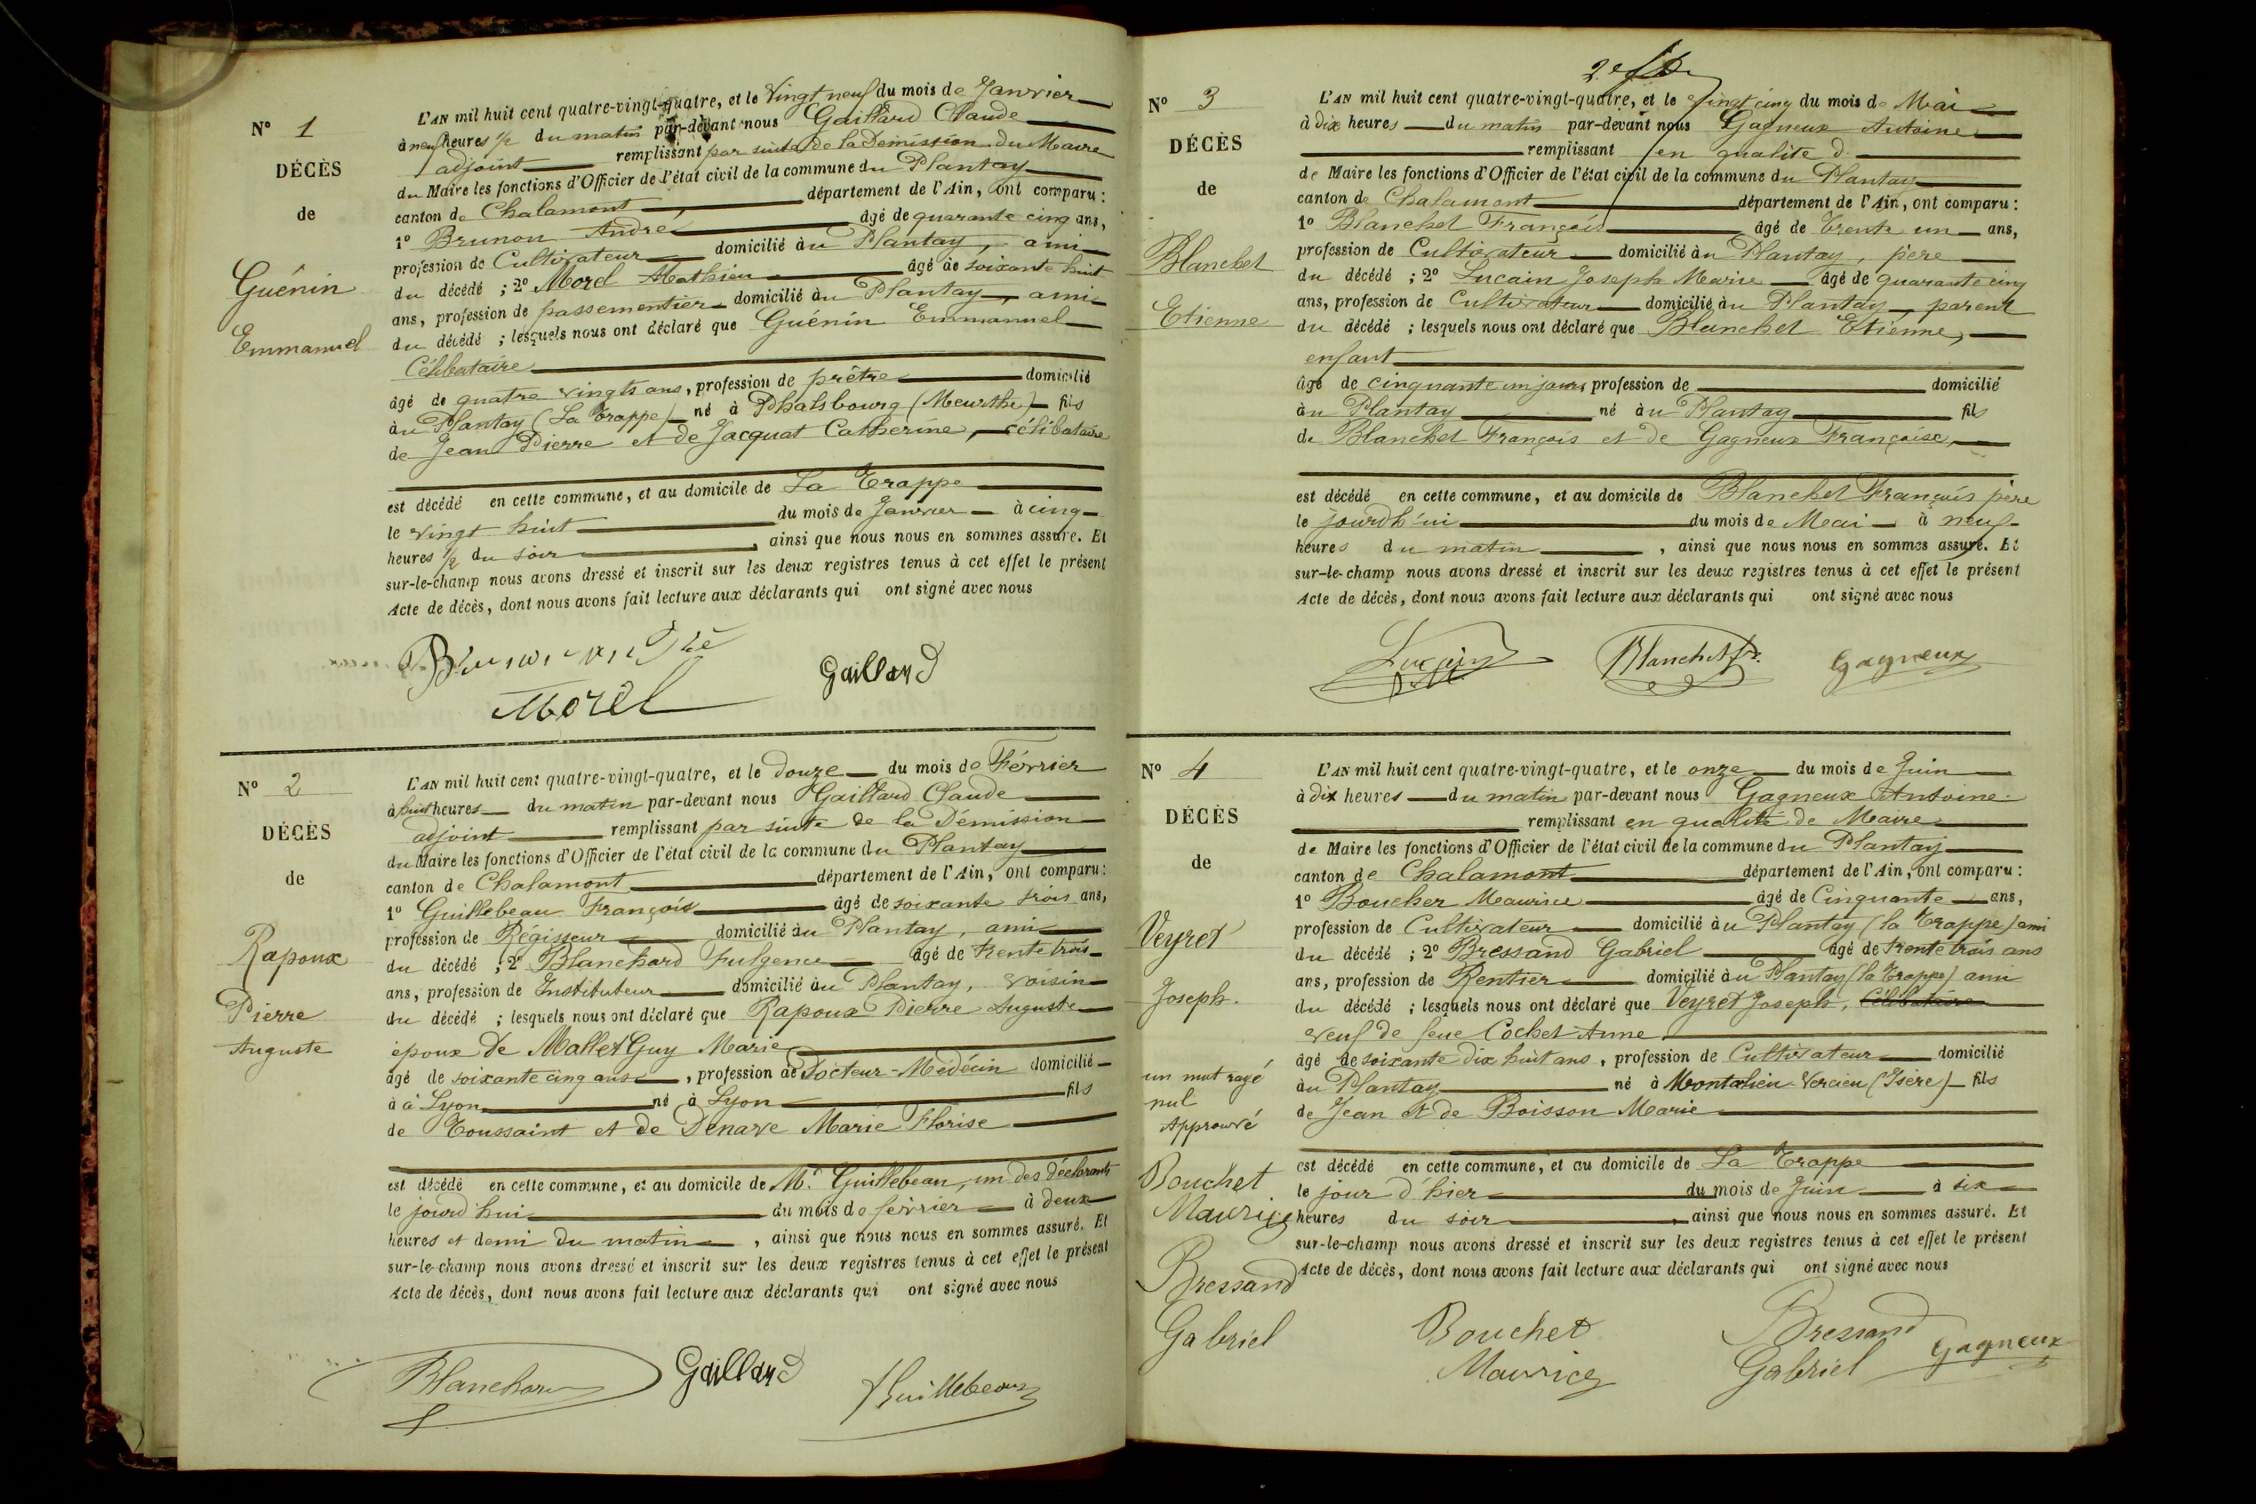 N° 1
DÉCÈS
de
Guénin
Emmanuel
L'AN mil huit cent quatre-vingt-quatre, et le Vingt neuf du mois de Janvier
à neuf heures ½ du matin par-devant nous Gaillard Claude
adjoint remplissant par suite de la Démission du Maire
du Maire les fonctions d'Officier de l'état civil de la commune du Plantay
canton de Chalamont département de l'Ain, ont comparu :
1° Brunon André âgé de quarante cinq ans,
profession de Cultivateur domicilié au Plantay, ami
du décédé ; 2° Morel Mathieu âgé de soixante huit
ans, profession de passementier domicilié au Plantay, ami
du décédé ; lesquels nous ont déclaré que Guénin Emmanuel
Célibataire
âgé de quatre vingts ans, profession de prêtre domicilié
au Plantay (La Trappe) né à Phalsbourg (Meurthe) fils
de Jean Pierre et de Jacquat Catherine, célibataire
est décédé en cette commune, et au domicile de La Trappe
le vingt huit du mois de Janvier à cinq
heures ½ du soir, ainsi que nous nous en sommes assuré. Et
sur-le-champ nous avons dressé et inscrit sur les deux registres tenus à cet effet le présent
Acte de décès, dont nous avons fait lecture aux déclarants qui ont signé avec nous
Brunon André
Morel
Gaillard
N° 2
DÉCÈS
de
Rapoux
Pierre
Auguste
L'AN mil huit cent quatre-vingt-quatre, et le douze du mois de Février
à huit heures du matin par-devant nous Gaillard Claude
adjoint remplissant par suite de la Démission
du Maire les fonctions d'Officier de l'état civil de la commune du Plantay
canton de Chalamont département de l'Ain, ont comparu :
1° Guillebeau François âgé de soixante trois ans,
profession de Régisseur domicilié au Plantay, ami
du décédé ; 2° Blanchard Fulgence âgé de trente trois
ans, profession de Instituteur domicilié au Plantay, voisin
du décédé ; lesquels nous ont déclaré que Rapoux Pierre Auguste
époux de Mallet Guy Marie
âgé de soixante cinq ans, profession de Docteur-Médécin domicilié
à à Lyon né à Lyon fils
de Toussaint et de Denave Marie Florise
est décédé en cette commune, et au domicile de Mr. Guillebeau, un des déclarants
le jourd'hui du mois de février à deux
heures et demi du matin, ainsi que nous nous en sommes assuré. Et
sur-le-champ nous avons dressé et inscrit sur les deux registres tenus à cet effet le présent
Acte de décès, dont nous avons fait lecture aux déclarants qui ont signé avec nous
Blanchard
Gaillard
Guillebeau
N° 3
DÉCÈS
de
Blanchet
Etienne
L'AN mil huit cent quatre-vingt-quatre, et le vingt cinq du mois de Mai
à dix heures du matin par-devant nous Gagneux Antoine
remplissant en qualité d
de Maire les fonctions d'Officier de l'état civil de la commune du Plantay
canton de Chalamont département de l'Ain, ont comparu :
1° Blanchet François âgé de Trente un ans,
profession de Cultivateur domicilié au Plantay, père
du décédé ; 2° Lucain Joseph Marie âgé de quarante cinq
ans, profession de Cultivateur domicilié au Plantay, parent
du décédé ; lesquels nous ont déclaré que Blanchet Etienne,
enfant
âgé de cinquante un jours profession de domicilié
au Plantay né au Plantay fils
de Blanchet François et de Gagneux Françoise,
est décédé en cette commune, et au domicile de Blanchet François père
le jourd'h'ui du mois de Mai à neuf
heures du matin, ainsi que nous nous en sommes assuré. Et
sur-le-champ nous avons dressé et inscrit sur les deux registres tenus à cet effet le présent
Acte de décès, dont nous avons fait lecture aux déclarants qui ont signé avec nous
Lucain
Blanchet
Gagneux
N° 4
DÉCÈS
de
Veyret
Joseph.
un mot rayé
nul
Approuvé
Bouchet
Maurice
Bressand
Gabriel
L'AN mil huit cent quatre-vingt-quatre, et le onze du mois de Juin
à dix heures du matin par-devant nous Gagneux Antoine
remplissant en qualité de Maire
de Maire les fonctions d'Officier de l'état civil de la commune du Plantay
canton de Chalamont département de l'Ain, ont comparu :
1° Boucher Maurice âgé de Cinquante ans,
profession de Cultivateur domicilié au Plantay (la Trappe) ami
du décédé ; 2° Bressand Gabriel âgé de trente trois ans
ans, profession de Rentier domicilié au Plantay (la Trappe) ami
du décédé ; lesquels nous ont déclaré que Veyret Joseph, Célibataire
veuf de feue Cochet Anne
âgé de soixante dix huit ans, profession de Cultivateur domicilié
au Plantay né à Montalieu Vercieu (Isère) fils
de Jean et de Boisson Marie
est décédé en cette commune, et au domicile de La Trappe
le jour d'hier du mois de Juin à six
heures du soir, ainsi que nous nous en sommes assuré. Et
sur-le-champ nous avons dressé et inscrit sur les deux registres tenus à cet effet le présent
Acte de décès, dont nous avons fait lecture aux déclarants qui ont signé avec nous
Bouchet
Maurice
Bressand
Gabriel
Gagneux